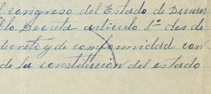 l congreso del Estado de Duran
llo Decreta articulo 1º des de
decreto y de conformidad con
de la constitucion del estado